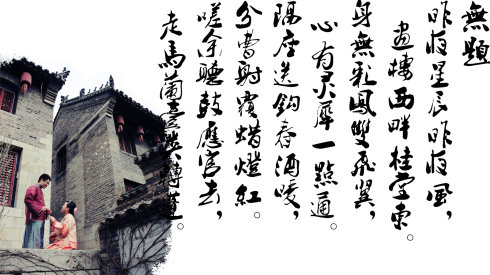 無題
昨夜星辰昨夜風，
畫樓西畔桂堂東。
身無彩鳳雙飛翼，
心有灵犀一點通。
隔座送鈎春酒暖，
分曹射覆蜡燈紅。
嗟余聽鼓應官去，
走馬蘭臺類轉蓬。